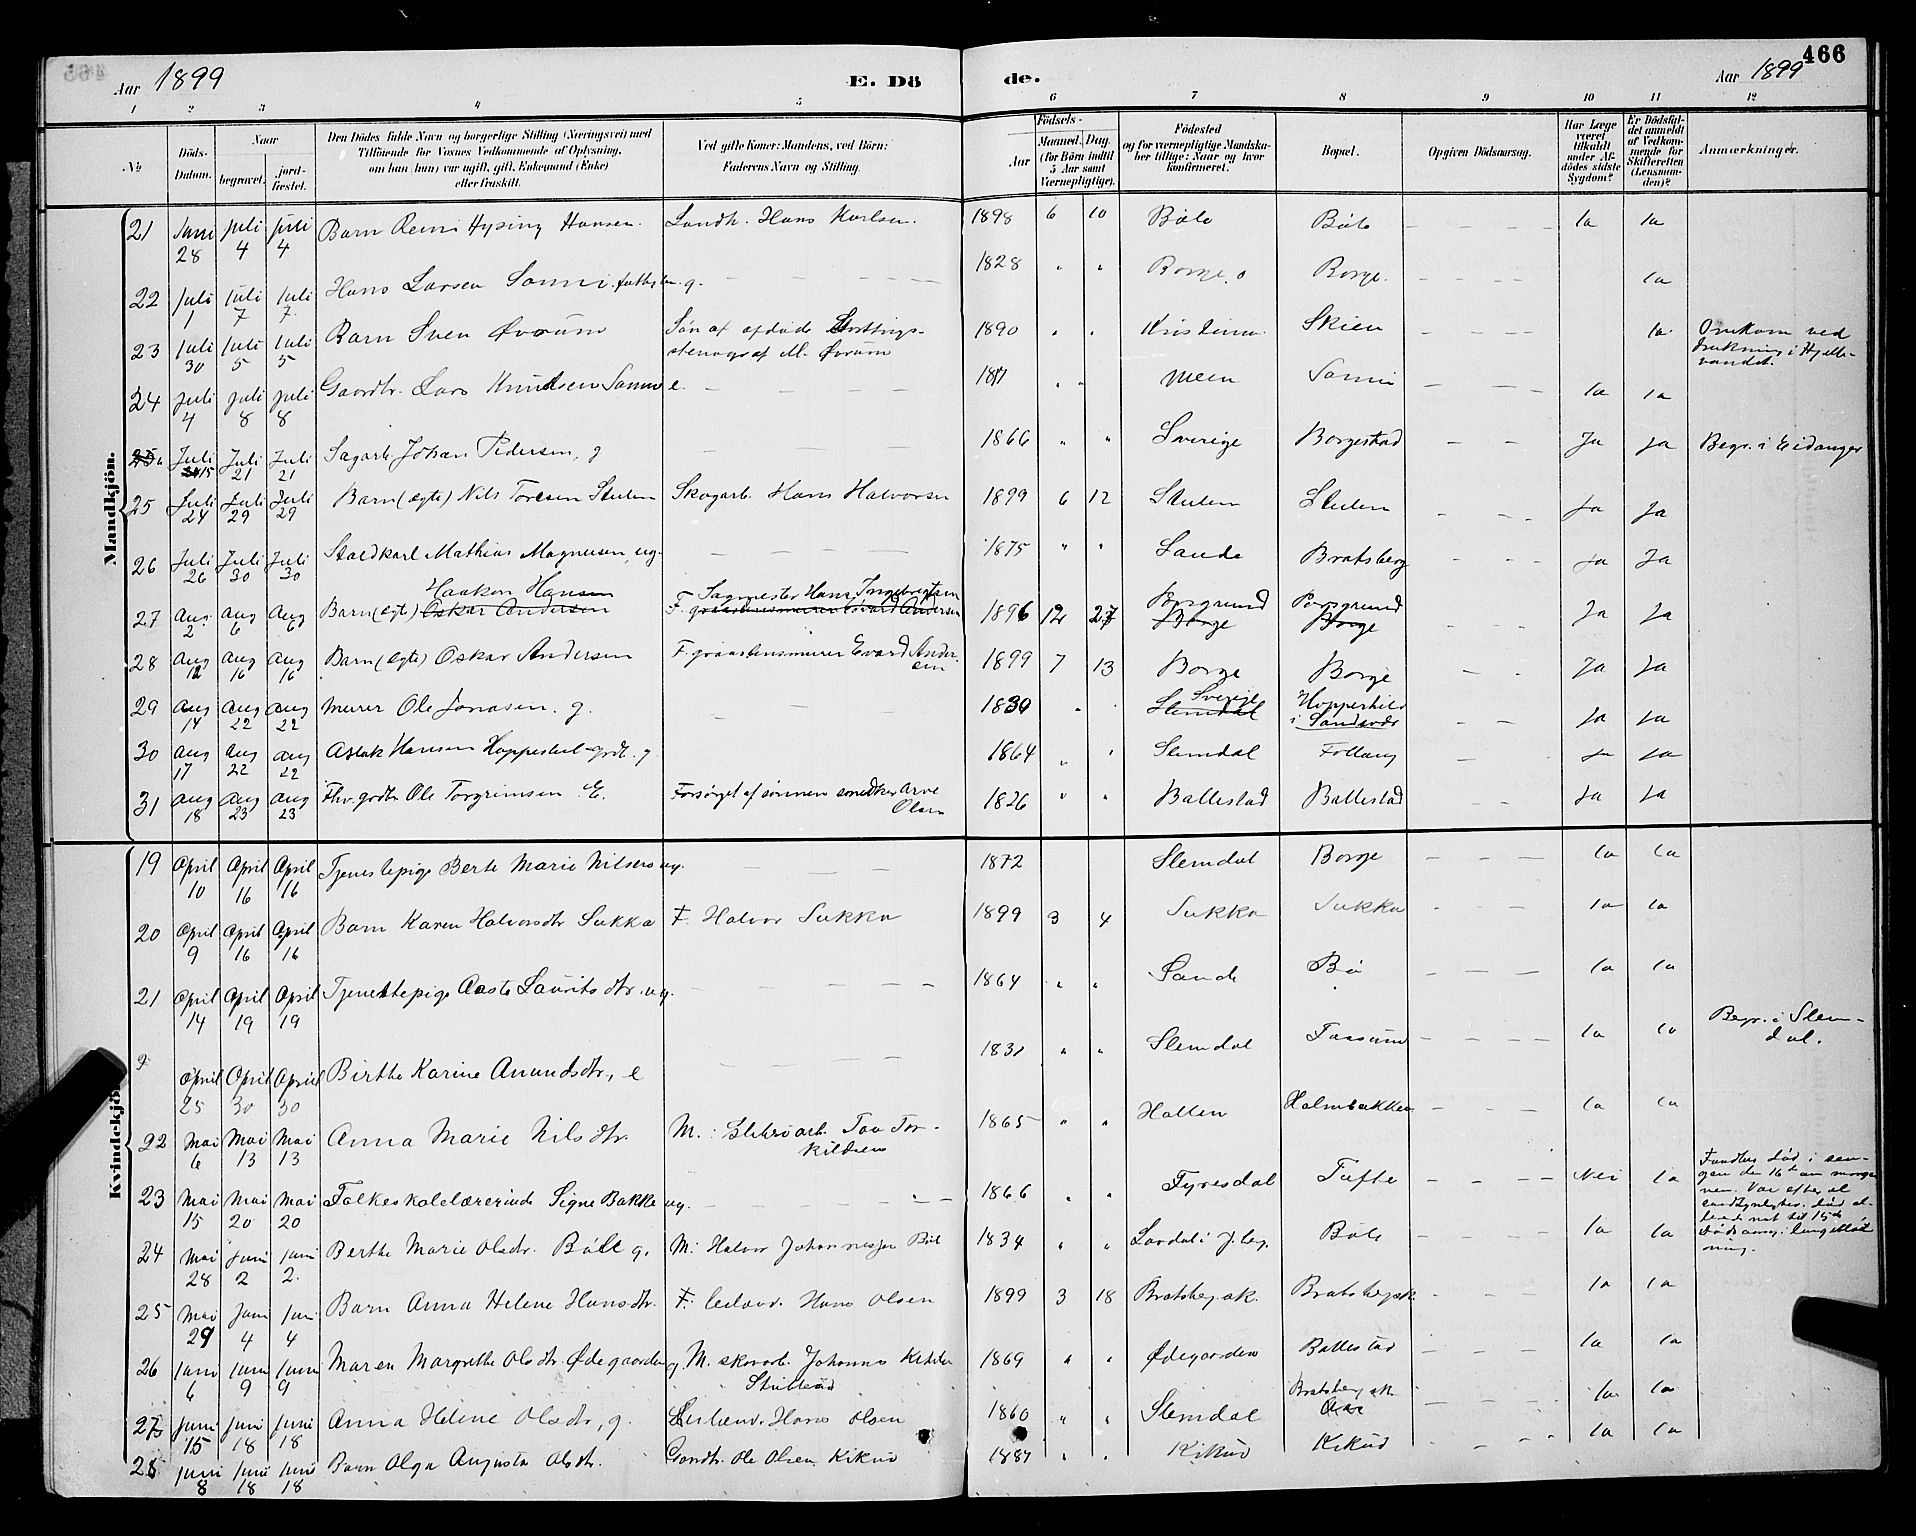 466
Aar 1899 E. Dö de. Aar 1899
1 2 3 4 5 6 7 8 9 10 11 12
No Döds-Datum. Naar begravet. jordfæstet. Den Dödes fulde Navn og borgerlige Stilling (Næringsvei) med Tilföiende for Voxnes Vedkommende af Oplysning, om han (hun) var ugift, gift, Enkemand (Enke) eller fraskilt. Ved gifte Koner: Mandens, ved Börn: Faderens Navn og Stilling. Födsels- Aar Maaned. Dag. (for Börn indtil 5 Aar samt Værnepligtige). Födested og for værnepligtige Mandskaber tillige: Naar og hvor konfirmeret. Bopæl. Opgiven Dödsaarsag. Har Læge været tilkaldt under Afdödes sidste Sygdom? Er Dödsfaldet anmeldt af Vedkommende for Skifteretten (Lensmanden)? Anmærkninger.
Mandkjön.
21 Juni 28 Juli 4 Juli 4 Barn Hysing Hansen. Landh. Hans Karlsen. 1898 6 10 Böle Böle Ja Ja
22 Juli 1 Juli 7 Juli 7 Hans Larsen g. 1828 " " Borge Borge. Ja
23 Juli 30 Juli 5 Juli 5 Barn Sven Övrum Sön af afdöde Stortings-stenograf M. Övrum 1890 " " Kristiania Skien Ja Omkom ved drukning i Hjelle-vandet.
24 Juli 4 Juli 8 Juli 8 Gaardbr. Lars Knudsen e. " " Ja Ja
Juli 15 Juli 21 Juli 21 Sagarb. Johan Pedersen, g 1866 " " Sverige Borgestad Ja Ja Begr. i Eidanger
25 Juli 24 Juli 29 Juli 29 Barn (egte) Nils Skogarb. Hans Halvorsen 1899 6 12 Ja Ja
26 Juli 26 Juli 30 Juli 30 Staldkarl Mathias Magnusen, ug. 1875 " " Sande Bratsberg Ja Ja
27 Aug 2 Aug 6 Aug 6 Barn (egte) Oskar Andersen Haakon Hansen F. Sagmester Hans Ingebrigtsen 1896 12 27 Porsgrund Borge Porsgrund Borge Ja Ja
28 Aug 12 Aug 16 Aug 16 Barn (egte) Oskar Andersen F. graastensmurer Evard Andersen 1899 7 13 Borge Borge Ja Ja
29 Aug 14 Aug 22 Aug 22 Murer Ole Jonasen. g. 1830 " " Slemdal Sverige i Ja Ja
30 Aug 17 Aug 22 Aug 22 Aslak Hansen g. 1864 " " Slemdal Ja Ja
31 Aug 18 Aug 23 Aug 23 Fhv. grdbr. Ole Torgrimsen E. Forsörget af sönnen snedker Arve Olsen 1826 " " Ballestad Ballestad Ja Ja
Kvindekjön.
19 April 10 April 16 April 16 Tjenestepige Berte Marie Nilsen ug. 1872 Slemdal Borge Ja Ja
20 April 9 April 16 April 16 Barn Karen Halvorsdtr Sukka F. Halvor Sukka 1899 3 4 Sukka Sukka Ja Ja
21 April 14 April 19 April 19 Tjenestepige Aaste Lauritsdtr. ug. 1864 " " Sande Bö Ja Ja
April 25 April 30 April 30 Birthe Karine Amundsdtr, e 1831 " " Slemdal Ja Ja Begr. i Slem-dal.
22 Mai 6 Mai 13 Mai 13 Anna Marie Nilsdtr. M.: Torkildsen 1865 " " Holten Holmbakken Ja Ja
23 Mai 15 Mai 20 Mai 20 Folkeskolelærerinde Signe Bakke ug. 1866 " " Fyresdal Tufte Nei Ja Fandtes död i sen-gen den 16de om morge-nen. Var efter al sandsynlighed död al-lerede nat til 15de. Dödsaars.:
24 Mai 28 Juni 2 Juni 2. Berthe Marie Olsdtr. Böle g. M: Halvor Johannesen Böle 1834 " " Böle Ja Ja
25 Mai 29 Juni 4 Juni 4 Barn Anna Helene Hansdtr. F. Hans Olsen 1899 3 18 Bratsbergak. Bratsbergak Ja Ja
26 Juni 6 Juni 9 Juni 9 Maren Margrethe Olsdtr. Ödegaarden g. M. skovarb. Johannes 1869 " " Ödegaarden Ballestad Ja Ja
27 Juni 15 Juni 18 Juni 18 Anna Helene Olsdtr, g. Hans Olsen 1860 " " Slemdal Bratsbergak Ja Ja
28 Juni 8 Juni 18 Juni 18 Barn Olga Augusta Olsdtr. Gaardbr. Ole Olsen Kikud 1887 " " Kikud Kikud Ja Ja